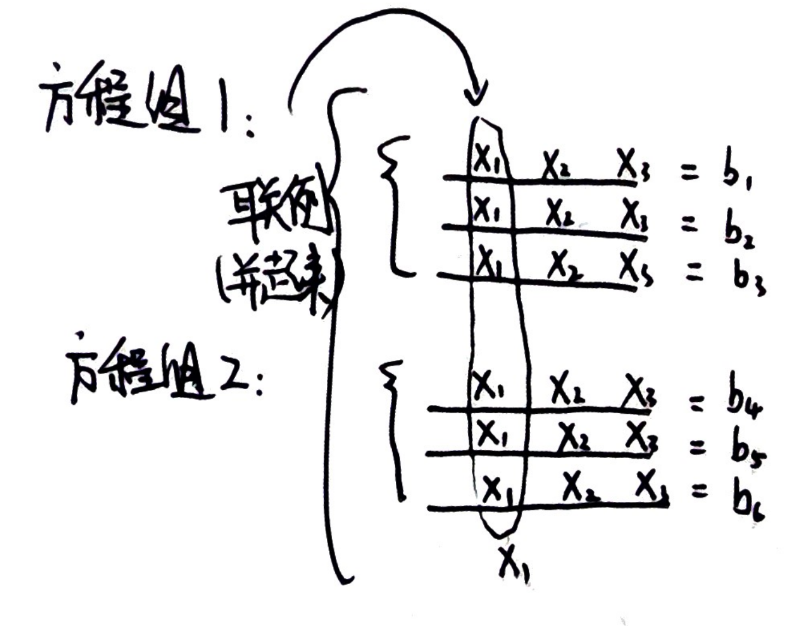 方程组1:
X₁ X₂ X₃ = b₁
联例 X₁ X₂ X₃ = b₂
(并起来) X₁ X₂ X₃ = b₃
方程组2:
X₁ X₂ X₃ = b₄
X₁ X₂ X₃ = b₅
X₁ X₂ X₃ = b₆
X₁